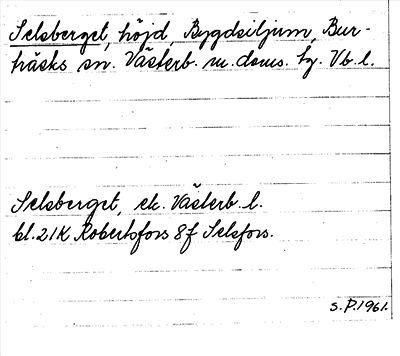 Selsberget, höjd, Bygdsiljum, Bur-
träsks sn. Västerb. m. doms. hy. Vb. l.
Selsberget, ek. Västerb. l.
bl. 21K Robertsfors 8f Selsfors.
S.P. 1961.